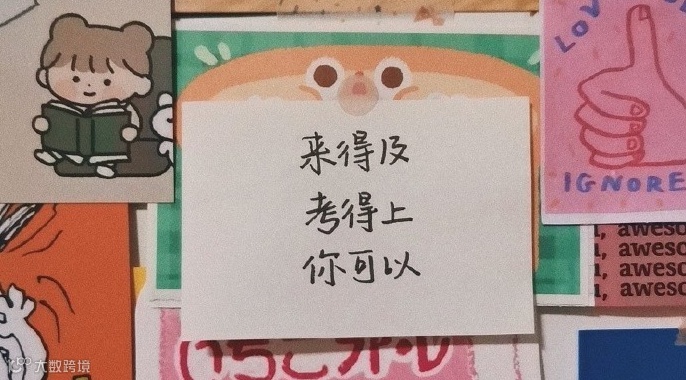 来得及
考得上
你可以
LOV
IGNORE
, aweso
, aweso
, aweso
, aweso
大数跨境